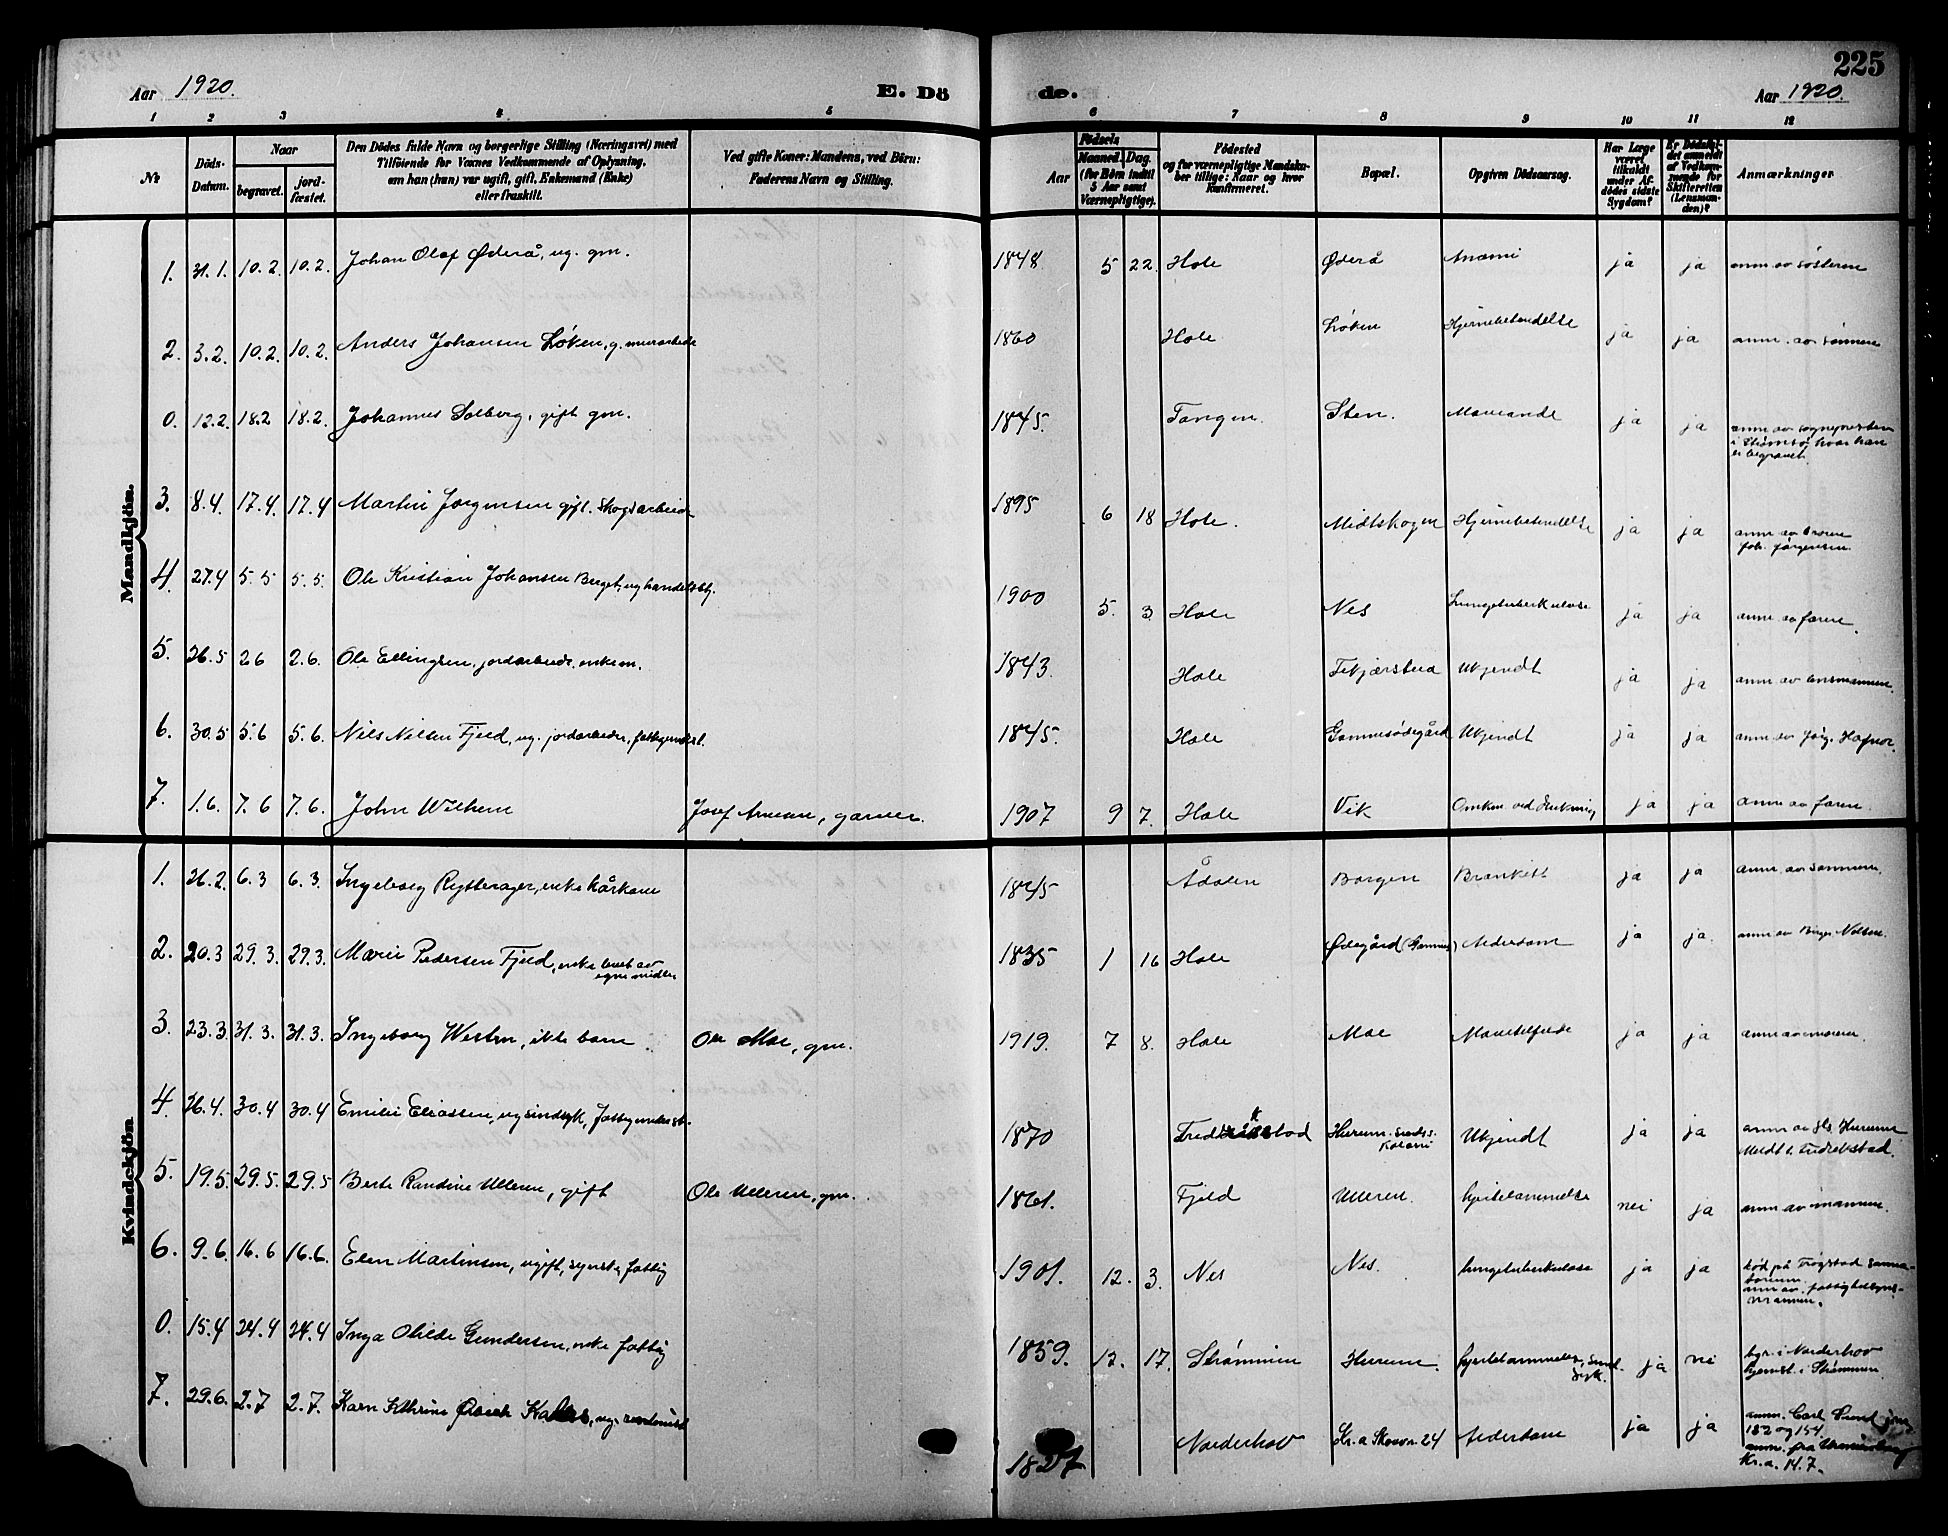 225
Aar 1920. E. Dö de. Aar 1920.
1 2 3 4 5 6 7 8 9 10 11 12
No
Döds-Datum.
Naar
begravet.
jord-fæstet.
Den Dödes fulde Navn og borgerlige Stilling (Næringsvei) med
Tilföiende for Voxnes Vedkommende af Oplysning,
om han (hun) var ugift, gift, Enkemand (Enke)
eller fraskilt.
Ved gifte Koner: Mandens, ved Börn:
Faderens Navn og Stilling.
Födsels
Aar
Maaned. Dag.
(for Börn indtil
5 Aar samt
Værnepligtige).
Födested
og for værnepligtige Mandska-
ber tillige: Naar og hvor
Konfirmeret.
Bopæl.
Opgiven Dödsaarsag.
Har Læge
været
tilkaldt
under Af-
dödes sidste
Sygdom?
Er Dödsfal-
det anmeldt
af Vedkom-
mende for
Skifteretten
(Lensman-
den)?
Anmærkninger
Mandkjön.
1. 31.1. 10.2. 10.2. Johan Olaf Øderå, ug. gm. 1848 5 22. Hole Øderå Anæmi ja ja anm. av søsteren
2. 3.2. 10.2. 10.2. Anders Johansen Løken, g. murarbeide 1860 Hole Løken Hjernebetendelse ja ja anm. av sønnen
0. 12.2. 18.2 18.2. Johannes Solberg, gift gm. 1845. Tangen. Sten. ja ja anm av sognepresten
i Strømsø, hvor han
er begravet.
3. 8.4. 17.4. 17.4 Martin Jørgensen gift. Skogsarbeid 1895 6 18 Hole. Midtskogen Hjernebetendelse ja ja anm av broren
Joh. Jørgensen.
4. 27.4 5.5 5.5. Ole Kristian Johansen Berget, ug handelsbtj. 1900 5. 3 Hole Nes Lungetuberkulose ja ja anm av faren.
5. 26.5 2 6 2.6. Ole Ellingsen, jordarbeide, enkem. 1843. Hole Ukjendt ja ja anm av lensmannen.
6. 30.5 5.6 5.6. Nils Nilsen Fjeld, ug. jordarbeider, fattigunderst. 1845. Hole Gomnesødegård Ukjendt ja ja anm av Jørg. Hafnor.
7. 1.6. 7.6 7.6. John Wilhem Josef Arnesen, garver. 1907 9 7. Hole Vik Omkom ved ja ja anm av faren.
Kvindekjön
1. 26.2. 6.3 6.3. Ingeborg Rytterager, enke kårkone 1845 Ådalen Borgen Bronkitt ja ja anm. av sønnen.
2. 20.3 29.3. 29.3. Marie Pedersen Fjeld, enke levet av
egne midler 1835 1 16 Hole Ødegård (Gomnes) Alderdom ja ja. anm av Birger Nilsen.
3. 23.3. 31.3. 31.3. Ingeborg Western, ekte barn Ole Moe, gm. 1919. 7 8. Hole Moe ja ja anm av moren.
4. 26.4. 30.4 30.4 Emilie Eliassen, ug sindsyk, fattigunderst. 1870 Fredrikstad Hurum. sinds.
Koloni Ukjendt ja ja
Meldt t. Fredrikstad.
5. 19.5. 29.5. 29.5 Berte Randine Ulleren, gift Ole Ulleren, gm. 1861. Fjeld Ulleren. hjertelammelse nei ja anm av mannen.
6. 9.6. 16.6 16.6. Elen Martinsen, ugift, syerske, fattig 1901. 12. 3. Nes Nes. lungetuberkulose ja ja død på Trøgstad sana-
torium.
anm av. fattigtilsyns-
mannen.
0. 15.4 24.4 24.4 Inga Olilde Gundersen, enke fattig 1859. 12. 17. Strømmen Hurum. hjertelammelse, sind-
syk. ja nei bgr. i Norderhov
hjemst. i Strømmen.
7. 29.6. 2.7 2.7. Karn Kathrine ug. 1827 Norderhov Kr.a Skovv. 24 Alderdom ja ja anm. Carl
182 og 154.
anm. fra
Kr.a. 14.7.